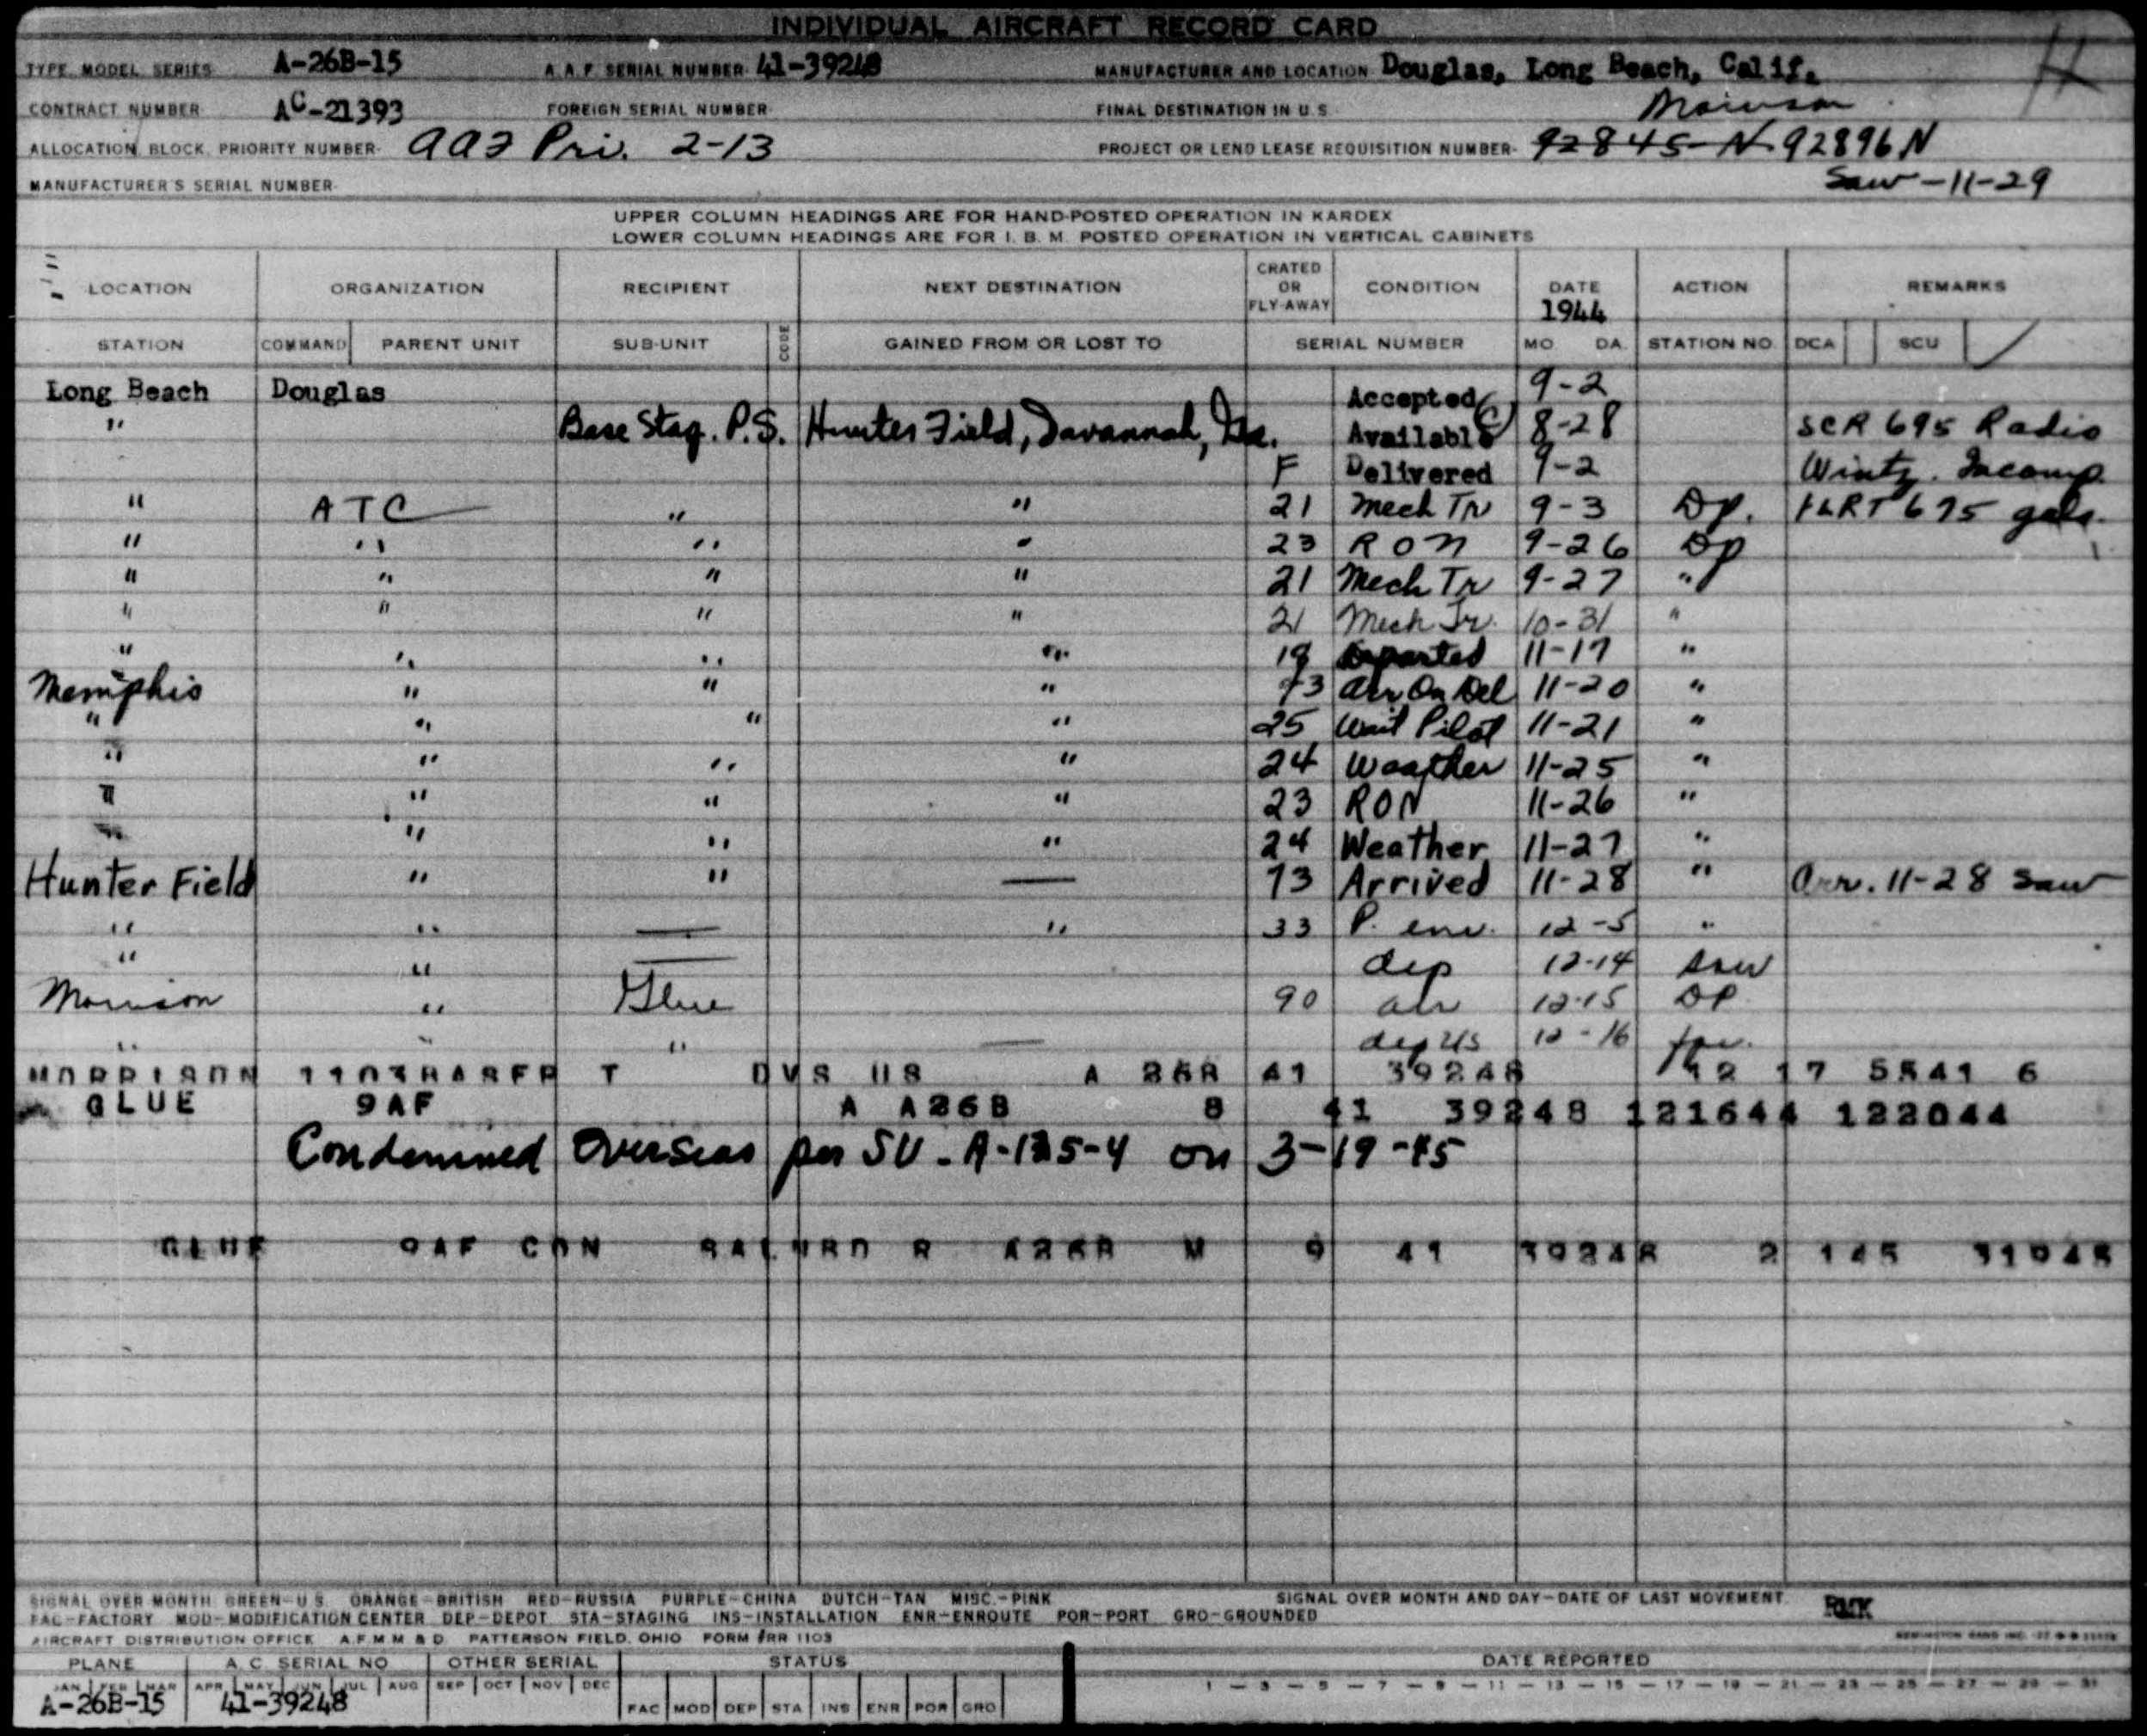 INDIVIDUAL AIRCRAFT RECORD CARD
TYPE MODEL SERIES A-26B-15 A.A.F. SERIAL NUMBER 41-39248 MANUFACTURER AND LOCATION Douglas, Long Beach, Calif.
CONTRACT NUMBER AC-21393 FOREIGN SERIAL NUMBER FINAL DESTINATION IN U.S. Morrison
ALLOCATION, BLOCK, PRIORITY NUMBER Pri. 2-13 PROJECT OR LEND LEASE REQUISITION NUMBER 92845-N 92896N
MANUFACTURER'S SERIAL NUMBER Saw-11-29
UPPER COLUMN HEADINGS ARE FOR HAND-POSTED OPERATION IN KARDEX
LOWER COLUMN HEADINGS ARE FOR I. B. M. POSTED OPERATION IN VERTICAL CABINETS
LOCATION ORGANIZATION RECIPIENT NEXT DESTINATION CRATED OR FLY-AWAY CONDITION DATE 1944 ACTION REMARKS
STATION COMMAND PARENT UNIT SUB-UNIT CODE GAINED FROM OR LOST TO SERIAL NUMBER MO. DA. STATION NO. DCA SCU
Long Beach Douglas Accepted 9-2
" Base Stag. P.S. Hunter Field, Savannah, Ga. Available 8-28 SCR 695 Radio
F Delivered 9-2 Wintz. Incomp.
" ATC " " 21 Mech Tr 9-3 Dp. 675 gals.
" " " " 23 RON 9-26 Dp
" " " " 21 Mech Tr 9-27 "
" " " " 21 Mech Tr. 10-31 "
" " " " 19 Departed 11-17 "
Memphis " " " 73 Arr On Del 11-20 "
" " " " 25 Wait Pilot 11-21 "
" " " " 24 Weather 11-25 "
" " " " 23 RON 11-26 "
" " " " 24 Weather 11-27 "
Hunter Field " " — 73 Arrived 11-28 " Arr. 11-28 Saw
" " — " 33 P. env. 12-5 "
" " — dep 12-14 saw
Morrison " Glue 90 arr 12-15 DP
" " " — dep US 12-16
MORRISON 1103BASFR T DVS US A 26B 41 39248 12 17 5541 6
GLUE 9AF A A26B 8 41 39248 121644 122044
Condemned Overseas per SU-A-135-4 on 3-19-45
GLUE 9AF CON SAL R A26B M 9 41 39248 2 145 31945
SIGNAL OVER MONTH GREEN-U.S. ORANGE-BRITISH RED-RUSSIA PURPLE-CHINA DUTCH-TAN MISC.-PINK SIGNAL OVER MONTH AND DAY-DATE OF LAST MOVEMENT.
FAC-FACTORY MOD-MODIFICATION CENTER DEP-DEPOT STA-STAGING INS-INSTALLATION ENR-ENROUTE POR-PORT GRO-GROUNDED
AIRCRAFT DISTRIBUTION OFFICE A.F.M.M & D. PATTERSON FIELD, OHIO FORM #RR 1103
PLANE A. C. SERIAL NO. OTHER SERIAL STATUS DATE REPORTED
JAN FEB MAR APR MAY JUN JUL AUG SEP OCT NOV DEC 1 — 3 — 5 — 7 — 9 — 11 — 13 — 15 — 17 — 19 — 21 — 23 — 25 — 27 — 29 — 31
A-26B-15 41-39248 FAC MOD DEP STA INS ENR POR GRO